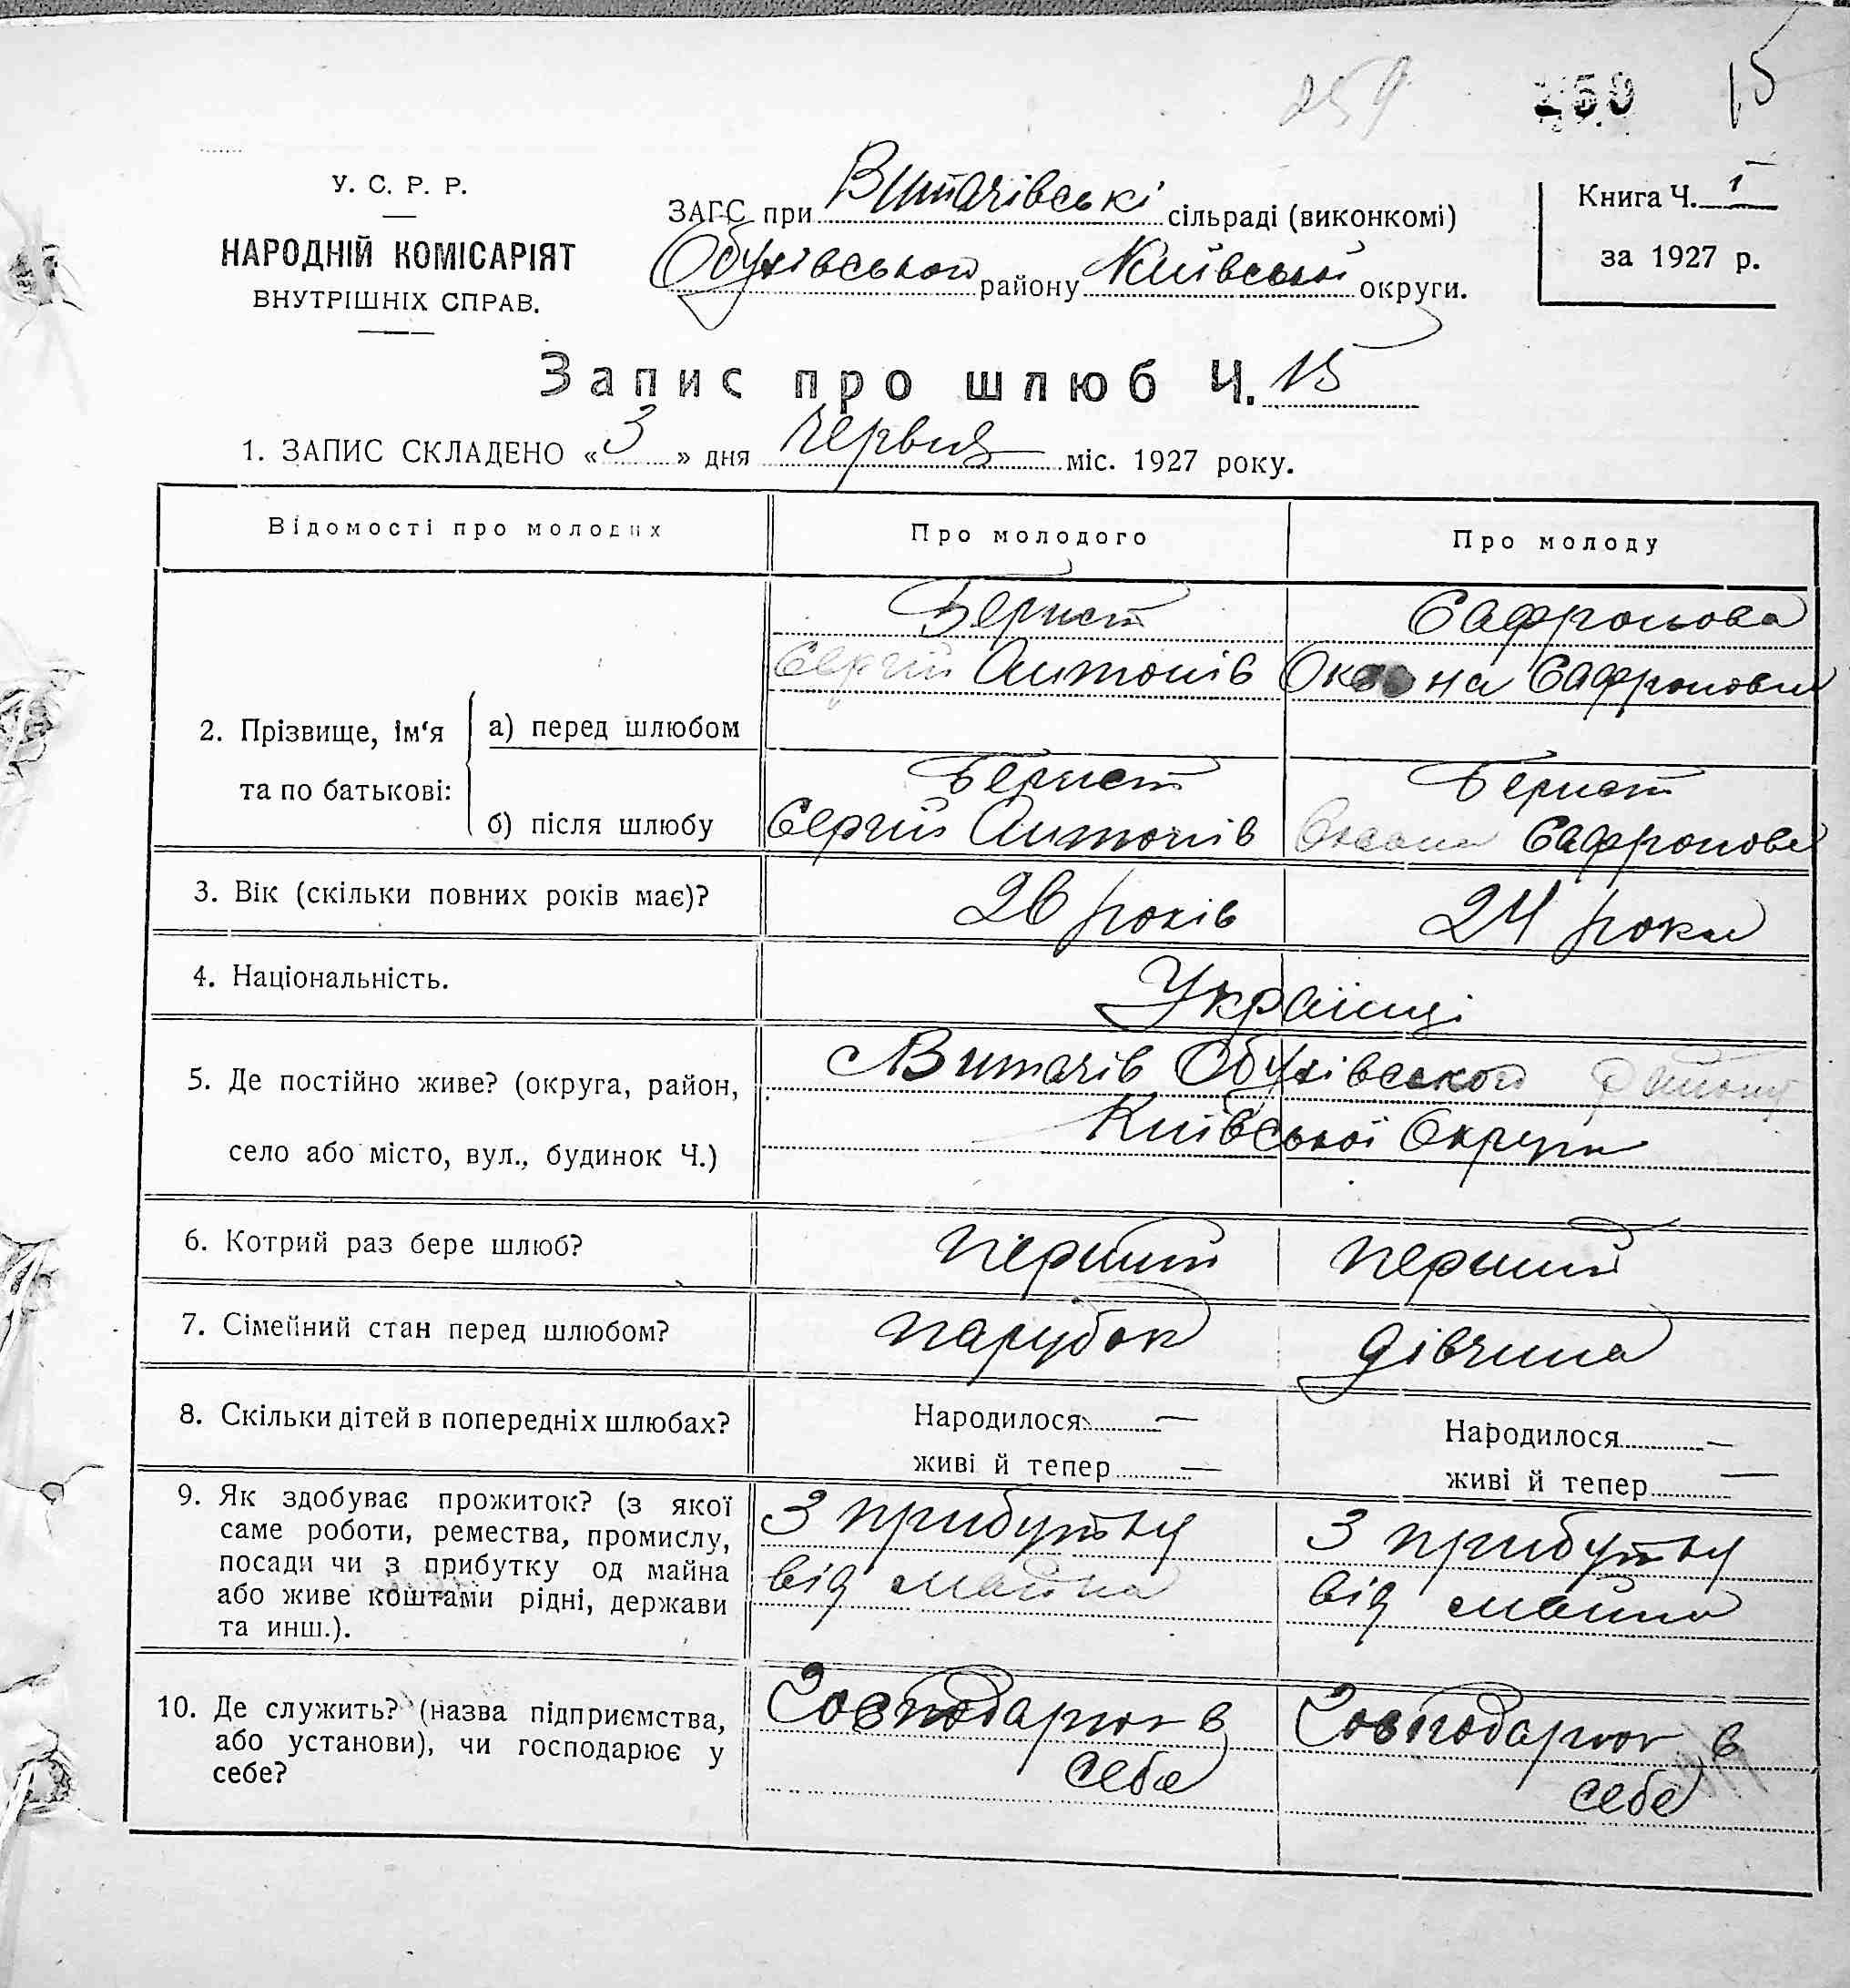 259 259 15
У. С. Р. Р.
НАРОДНІЙ КОМІСАРІЯТ
ВНУТРІШНІХ СПРАВ.
ЗАГС при Витачівські сільраді (виконкомі)
Обухівського району Київської округи.
Книга Ч. 1
за 1927 р.
Запис про шлюб Ч. 15
1. ЗАПИС СКЛАДЕНО «3» дня червня міс. 1927 року.
Відомості про молодих Про молодого Про молоду
2. Прізвище, ім'я та по батькові:
а) перед шлюбом
Сафронова
Сергій Антонів Оксана Сафроновна
б) після шлюбу
Сергій Антонів Оксана Сафронова
3. Вік (скільки повних років має)? 26 років 24 роки
4. Національність. Українці
5. Де постійно живе? (округа, район, Витачів Обухівського району
село або місто, вул., будинок Ч.) Київської Округи
6. Котрий раз бере шлюб? перший перший
7. Сімейний стан перед шлюбом? парубок дівчина
8. Скільки дітей в попередніх шлюбах? Народилося — Народилося —
живі й тепер — живі й тепер —
9. Як здобуває прожиток? (з якої
саме роботи, ремества, промислу,
посади чи з прибутку од майна
або живе коштами рідні, держави
та инш.).
З прибутку З прибутку
від майна від майна
10. Де служить? (назва підприємства,
або установи), чи господарює у
себе?
Господарює в Господарює в
себе себе